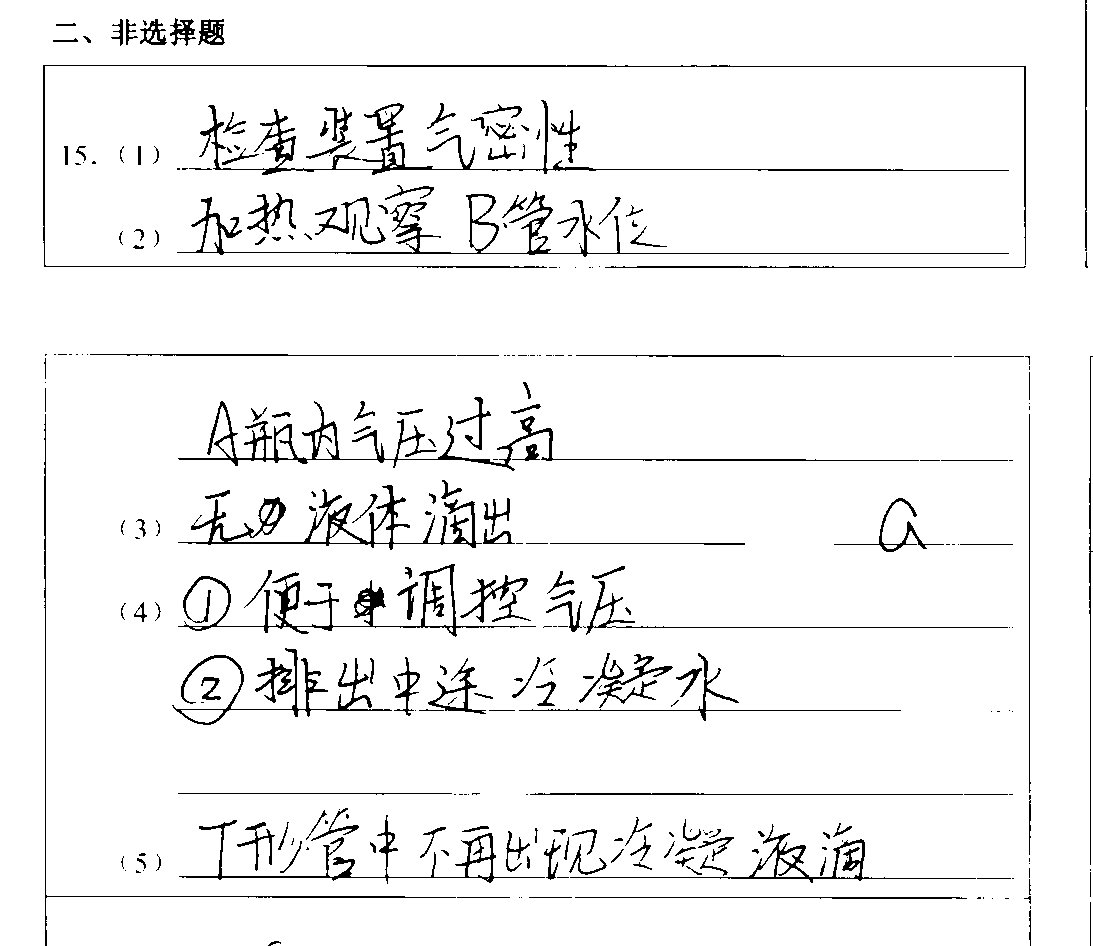 二、非选择题
15.（1） 检查装置气密性
（2） 加热观察B管水位
A瓶内气压过高
（3） 无液体滴出 a
（4） ①便于调控气压
②排出中途冷凝水
（5） T形管中不再出现冷凝液滴